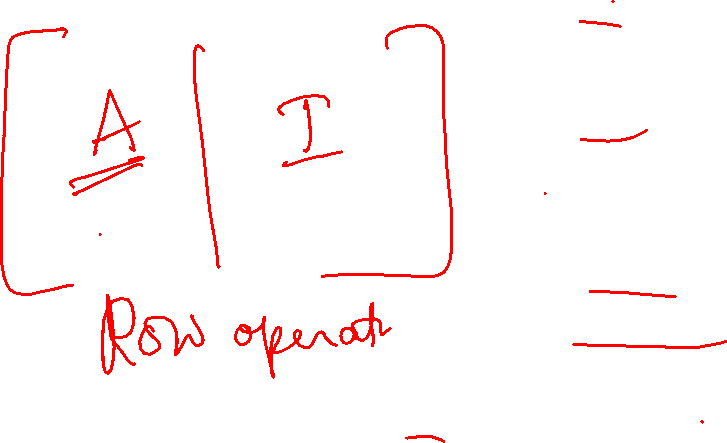 [ A | I ]
Row operati